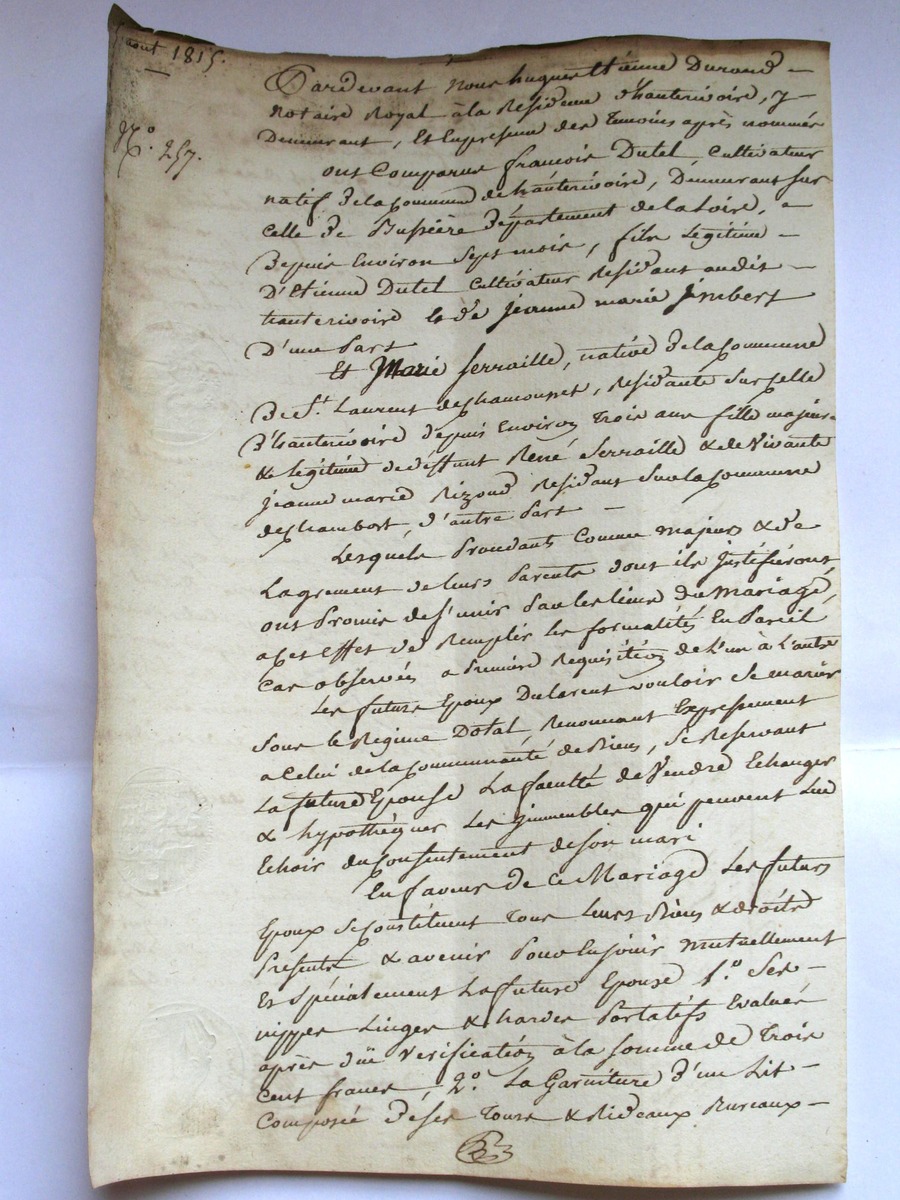 aout 1815.
N.º 257.
Pardevant nous hugues Etienne Durand –
notaire Royal à la Residence d'hauterivoire, y –
Demeurant, Et Enpresence des Temoins après nommés
ont Comparus francois Dutel, Cultivateur
natif de la Commune de hauterivoire, Demeurant sur
celle de Bussière Département de la Loire, –
Depuis Environ Sept mois, fils Legitime –
D'Etienne Dutel Cultivateur Residant audit –
hauterivoire et de jeanne marie jmbert
D'une Part
Et Marie ferraille, native de la Commune
de St. Laurent de Chamousset, residante sur Celle
d'hauterivoire depuis Environ Trois ans fille majeure
& legitime de deffunt René ferraille & de Vivante
jeanne marie Rizond Residant sur la Commune
de Chambost, d'autre Part –
Lesquels Procedants Comme majeurs & de
L'agrement de leurs Parents dont ils justifieront,
ont Promis de s'unir Par les liens du Mariage,
a Cet Effet de Remplir les formalités En Pareil
Cas observées a Première Requisition de L'un à L'autre
Les futurs Epoux Declarent vouloir se marier
sous le Régime Dotal, Renoncant Expressement
a Celui de la Communauté de Biens, se Reservant
La future Epouse La faculté de Vendre Echanger
& hypothéquer Les jmmeubles qui peuvent Lui
Echoir du Consentement de son mari
En faveur de Ce Mariage Les futurs
Epoux se Constituent Tous Leurs Biens & droits
Présents & avenir Pour En jouir mutuellement
Et Spécialement La future Epouse 1.º Ses –
nippes Linges & hardes Portatifs Evalués
après düe Verification à la somme de Trois
Cent francs, 2.º La Garniture d'un Lit –
Composée de ses Tours & Rideaux Bureaux –